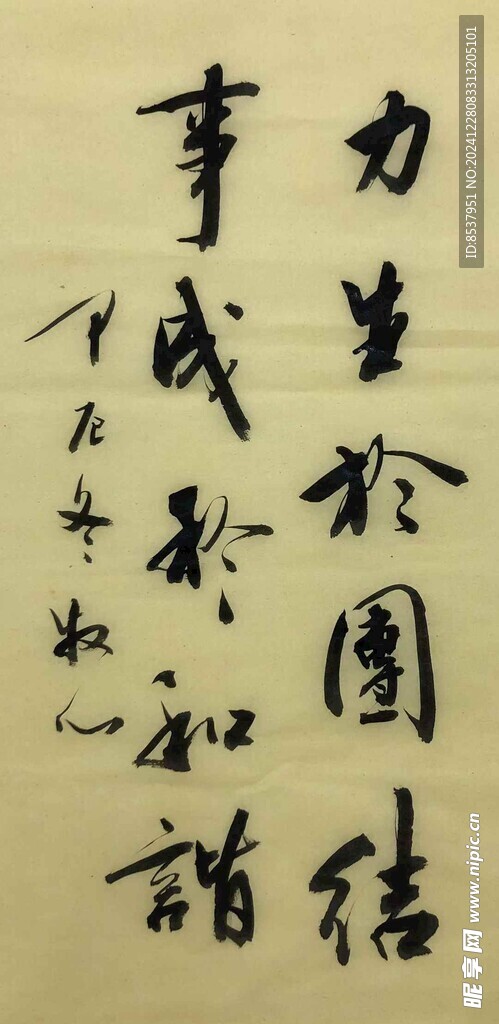 力生於團結
事成於和諧
甲辰冬牧心
ID:8537951 NO:20241228083313205101
昵享网 www.nipic.cn